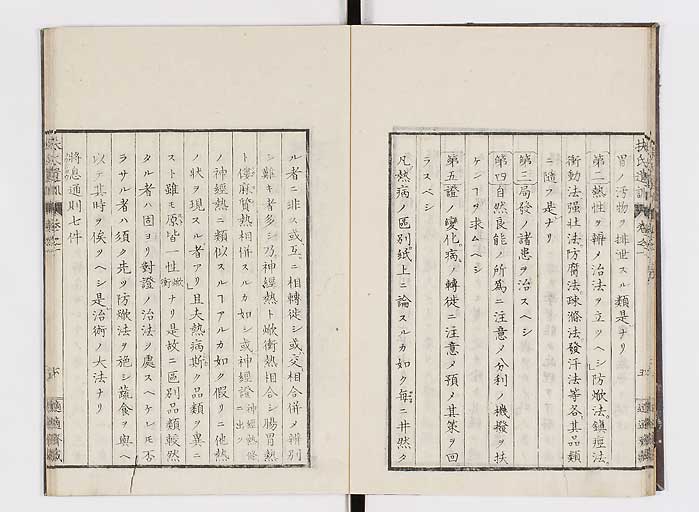 扶氏遺訓 卷之一
胃ノ汚物ヲ排世スル類是ナリ
第二熱性ヲ辨ノ治法ヲ立ツヘシ防焮法鎮痙法
衝動法强壯法防腐法疎滌法發汗法等各其品類
ニ隨フ是ナリ
第三局發ノ諸患ヲ治スヘシ
第四自然良能ノ所爲ニ注意ノ分利ノ機撥ヲ扶
ケンヿヲ求ムヘシ
第五證ノ變化病ノ轉徙ニ注意ノ預ノ其策ヲ回
ラスヘシ
凡熱病ノ區別紙上ニ論スルカ如ク毎ニ井然タ
適適齋藏
ル者ニ非ス或互ニ相轉徙シ或交相合併ノ辨別
シ難キ者多シ乃神經熱ト焮衝熱相合シ腸胃熱
ト僂麻質熱相併スルカ如シ或神經證神經熱條ニ出ツ
ノ神經熱ニ類似スルヿアルカ如ク假リニ他熱
ノ狀ヲ現スル者アリ且夫熱病斯ク品類ヲ異ニ
スト雖モ原皆一性焮衝ナリ是故ニ區別品類較然
タル者ハ固ヨリ對證ノ治法ノ處スヘケレモ否
ラサル者ハ須ク先ツ防焮法ヲ施シ蔬食ヲ與ヘ
以テ其時ヲ俟ツヘシ是治術ノ大法ナリ
將息通則七件
適適齋藏